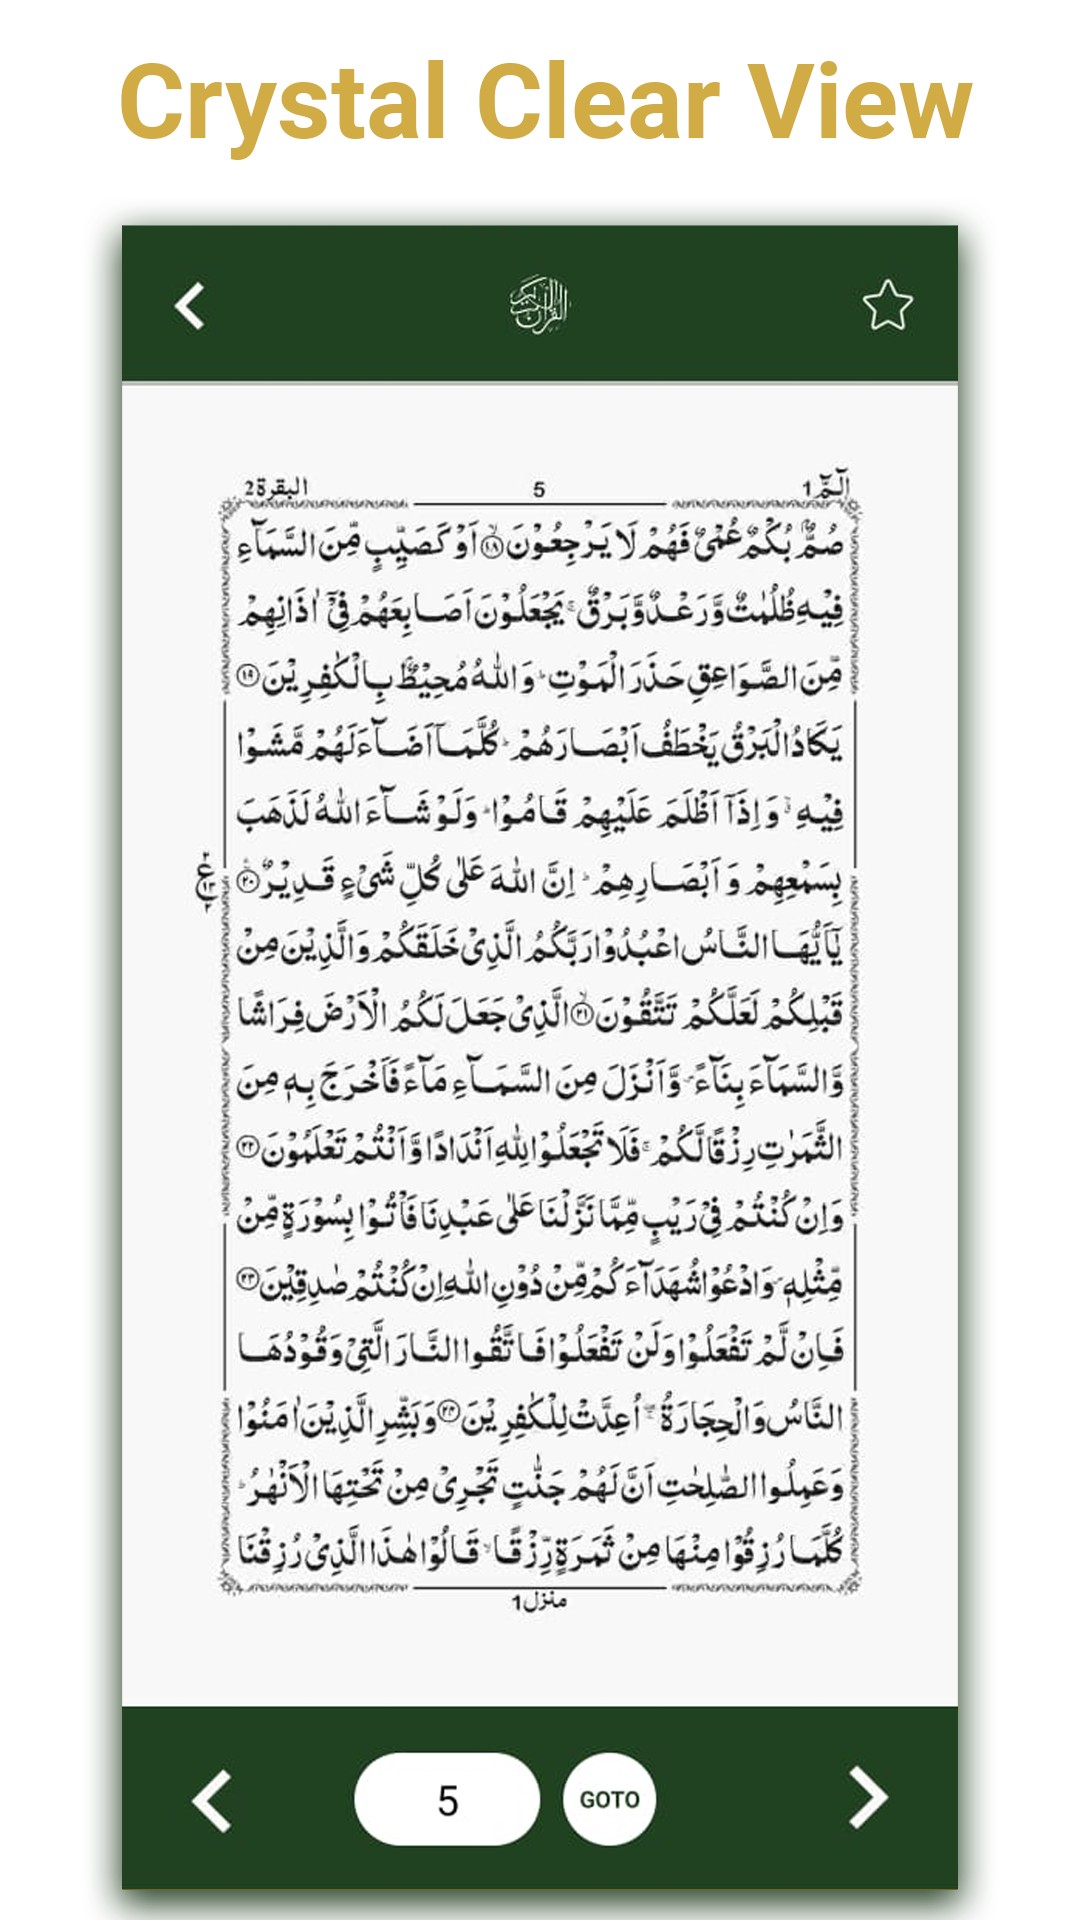 Crystal Clear View
القرآن الكريم
الٓمّٓ 1
5
البقرة 2
صُمٌّۢ بُكْمٌ عُمْیٌ فَهُمْ لَا یَرْجِعُوْنَ ﴿۱۸﴾ۙ اَوْ كَصَیِّبٍ مِّنَ السَّمَآءِ
فِیْهِ ظُلُمٰتٌ وَّرَعْدٌ وَّبَرْقٌ ۚ یَجْعَلُوْنَ اَصَابِعَهُمْ فِیْۤ اٰذَانِهِمْ
مِّنَ الصَّوَاعِقِ حَذَرَ الْمَوْتِ ؕ وَاللّٰهُ مُحِیْطٌۢ بِالْكٰفِرِیْنَ ﴿۱۹﴾
یَكَادُ الْبَرْقُ یَخْطَفُ اَبْصَارَهُمْ ؕ كُلَّمَاۤ اَضَآءَ لَهُمْ مَّشَوْا
فِیْهِ ۙۗ وَاِذَاۤ اَظْلَمَ عَلَیْهِمْ قَامُوْا ؕ وَلَوْ شَآءَ اللّٰهُ لَذَهَبَ
بِسَمْعِهِمْ وَاَبْصَارِهِمْ ؕ اِنَّ اللّٰهَ عَلٰی كُلِّ شَیْءٍ قَدِیْرٌ ﴿۲۰﴾
ع
۲
۱۳
۲
یٰۤاَیُّهَا النَّاسُ اعْبُدُوْا رَبَّكُمُ الَّذِیْ خَلَقَكُمْ وَالَّذِیْنَ مِنْ
قَبْلِكُمْ لَعَلَّكُمْ تَتَّقُوْنَ ﴿۲۱﴾ۙ الَّذِیْ جَعَلَ لَكُمُ الْاَرْضَ فِرَاشًا
وَّالسَّمَآءَ بِنَآءً ۪ وَّاَنْزَلَ مِنَ السَّمَآءِ مَآءً فَاَخْرَجَ بِهٖ مِنَ
الثَّمَرٰتِ رِزْقًا لَّكُمْ ۚ فَلَا تَجْعَلُوْا لِلّٰهِ اَنْدَادًا وَّاَنْتُمْ تَعْلَمُوْنَ ﴿۲۲﴾
وَاِنْ كُنْتُمْ فِیْ رَیْبٍ مِّمَّا نَزَّلْنَا عَلٰی عَبْدِنَا فَاْتُوْا بِسُوْرَةٍ مِّنْ
مِّثْلِهٖ ۪ وَادْعُوْا شُهَدَآءَكُمْ مِّنْ دُوْنِ اللّٰهِ اِنْ كُنْتُمْ صٰدِقِیْنَ ﴿۲۳﴾
فَاِنْ لَّمْ تَفْعَلُوْا وَلَنْ تَفْعَلُوْا فَاتَّقُوا النَّارَ الَّتِیْ وَقُوْدُهَا
النَّاسُ وَالْحِجَارَةُ ۖۚ اُعِدَّتْ لِلْكٰفِرِیْنَ ﴿۲۴﴾ وَبَشِّرِ الَّذِیْنَ اٰمَنُوْا
وَعَمِلُوا الصّٰلِحٰتِ اَنَّ لَهُمْ جَنّٰتٍ تَجْرِیْ مِنْ تَحْتِهَا الْاَنْهٰرُ ؕ
كُلَّمَا رُزِقُوْا مِنْهَا مِنْ ثَمَرَةٍ رِّزْقًا ۙ قَالُوْا هٰذَا الَّذِیْ رُزِقْنَا
منزل 1
5
GOTO